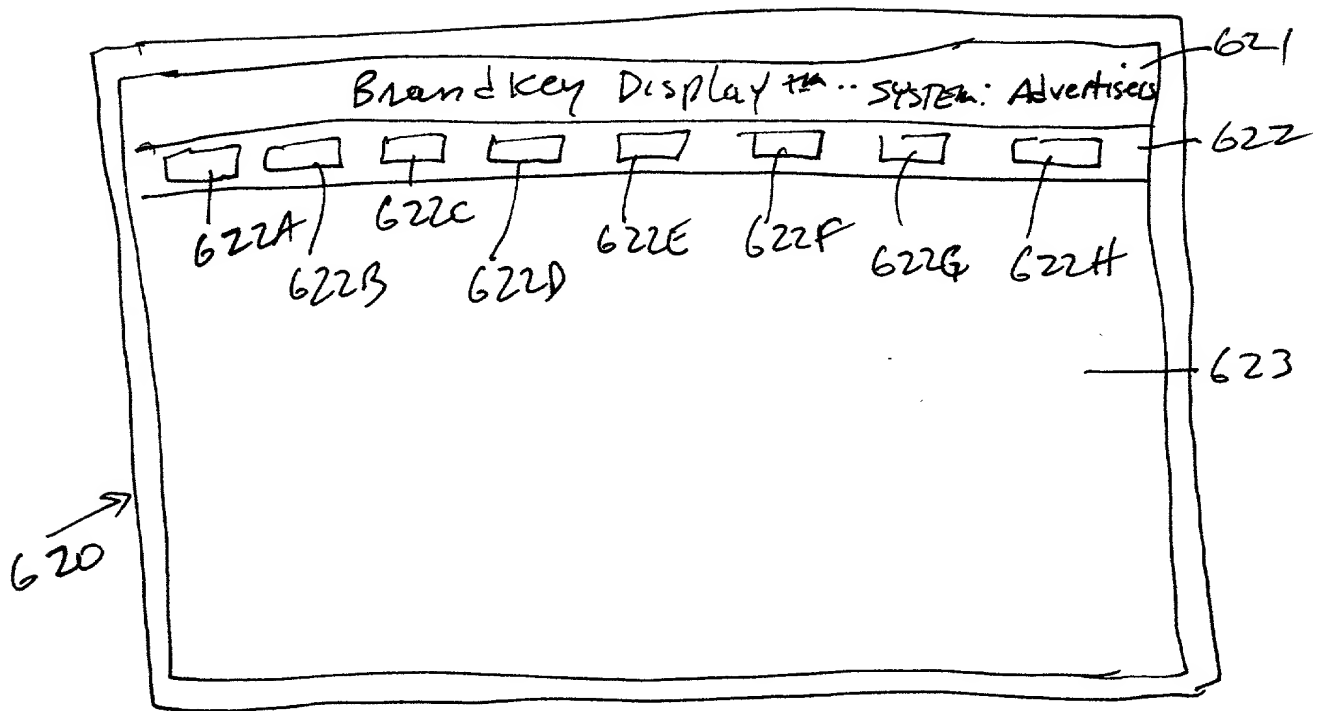 621
BrandKey Display ™.. SYSTEM: Advertisers
622
622A 622B 622C 622D 622E 622F 622G 622H
623
620